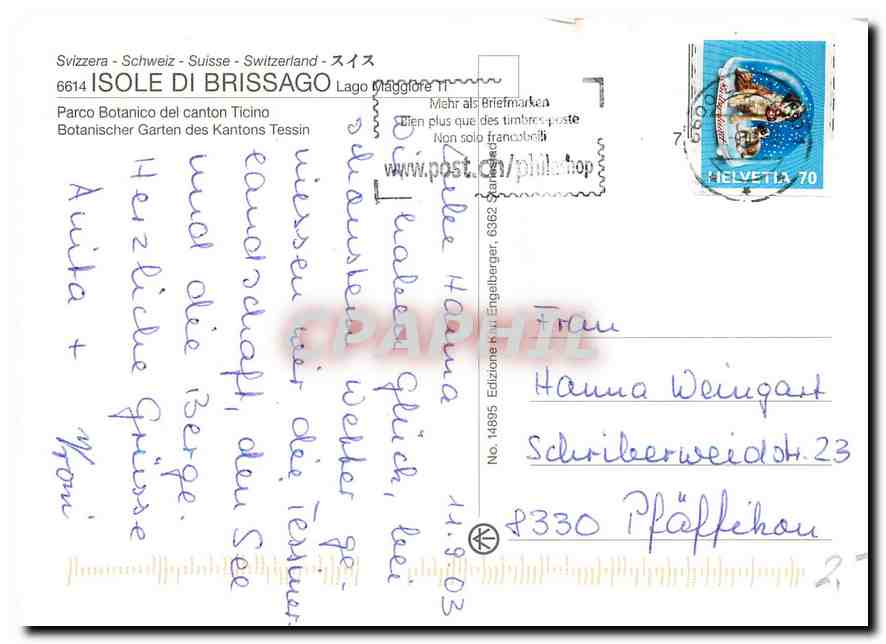 Svizzera - Schweiz - Suisse - Switzerland - スイス
6614 ISOLE DI BRISSAGO Lago Maggiore TI
Parco Botanico del canton Ticino
Botanischer Garten des Kantons Tessin
Mehr als Briefmarken
Bien plus que des timbres-poste
Non solo francobolli
www.post.ch/philashop
6600
HELVETIA 70
11.9.03
Liebe Hanna
Wir haben Glück, bei
schönstem Wetter ge-
niessen wir die Tessiner
Landschaft, den See
und die Berge.
Herzliche Grüsse
Anita + Vroni
No. 14895 Edizione Engelberger, 6362 Stansstad
Frau
Hanna Weingart
Schriberweidstr. 23
8330 Pfäffikon
CPAPHIL
2,-